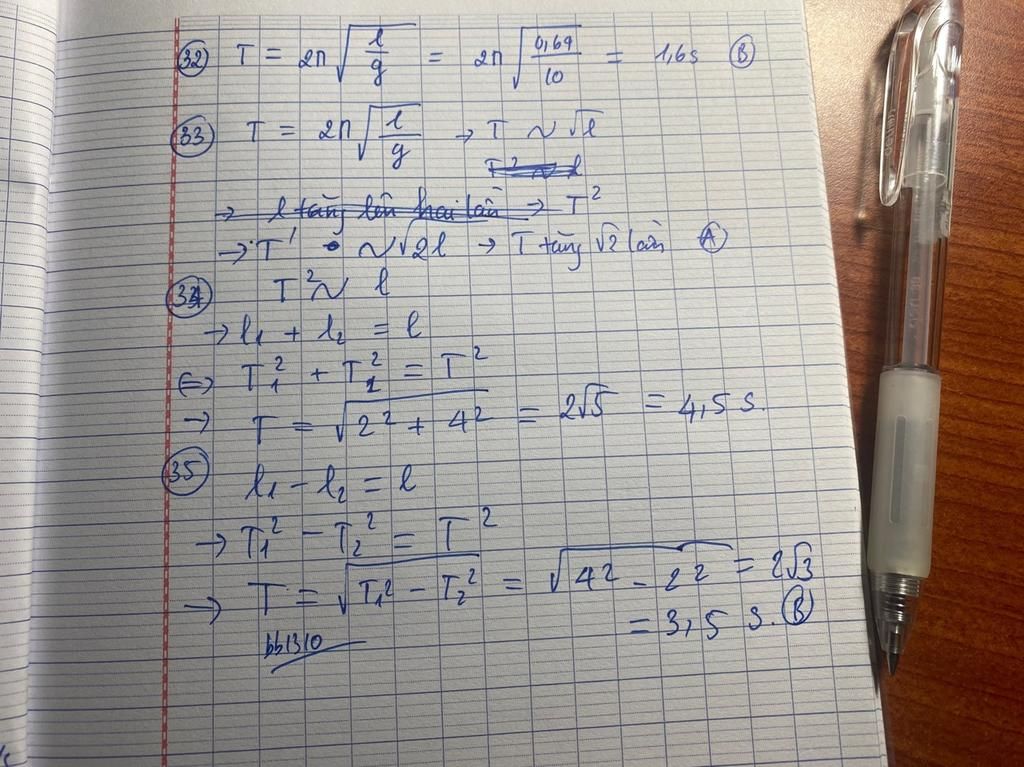 32 T = 2π√(l/g) = 2π√(0,64/10) = 1,6s B
33 T = 2π√(l/g) → T ~ √l
T² ~ l
→ l tăng lên hai lần → T²
→ T' ~ √2l → T tăng √2 lần A
34 T² ~ l
→ l₁ + l₂ = l
⇔ T₁² + T₂² = T²
→ T = √(2² + 4²) = 2√5 = 4,5 s.
35 l₁ - l₂ = l
→ T₁² - T₂² = T²
→ T = √(T₁² - T₂²) = √(4² - 2²) = 2√3
= 3,5 s. B
bb1310